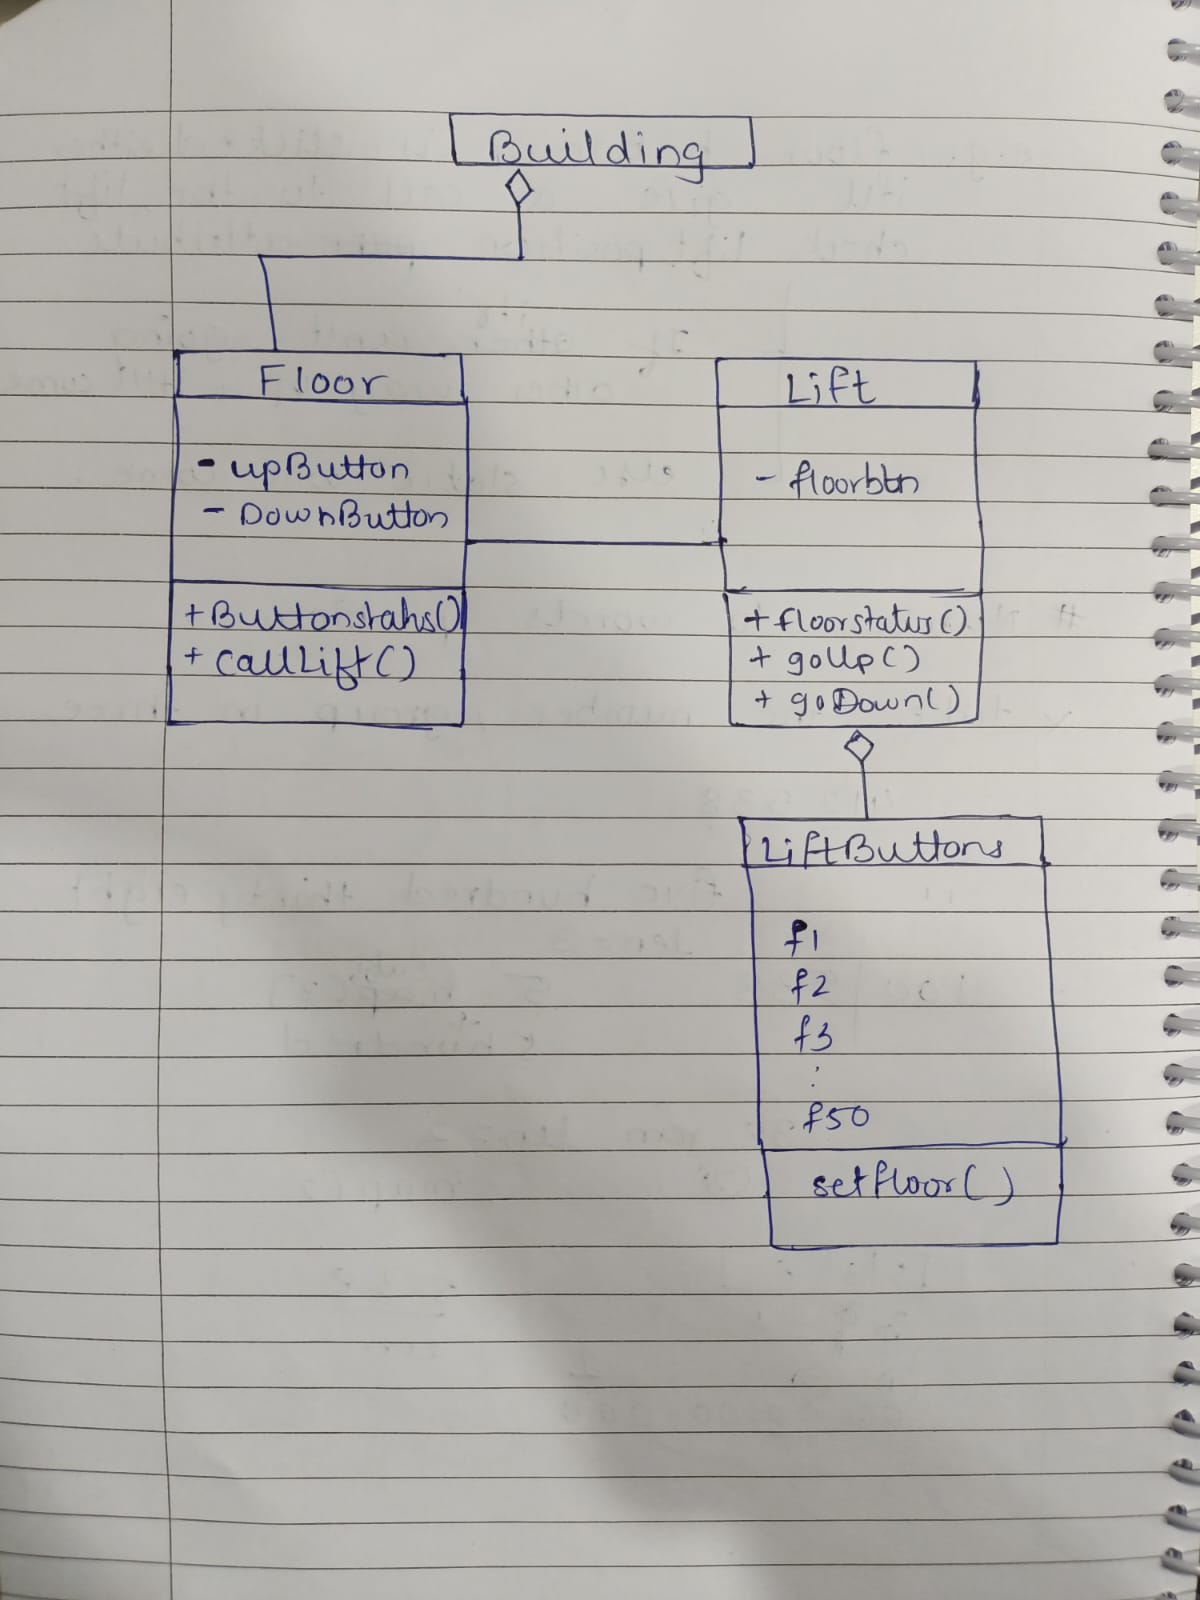 Building
Floor
- upButton
- DownButton
+ Buttonstatus()
+ callLift()
Lift
- floorbtn
+ floorstatus()
+ goUp()
+ goDown()
LiftButtons
f1
f2
f3
:
f50
setfloor()